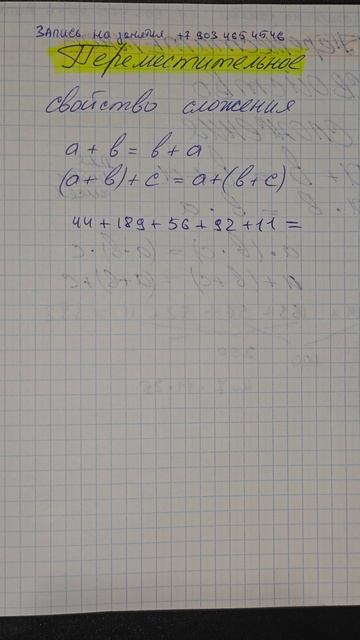 Запись на занятия +7 903 465 45 46
Переместительное
свойство сложения
a + b = b + a
(a + b) + c = a + (b + c)
44 + 189 + 56 + 92 + 11 =